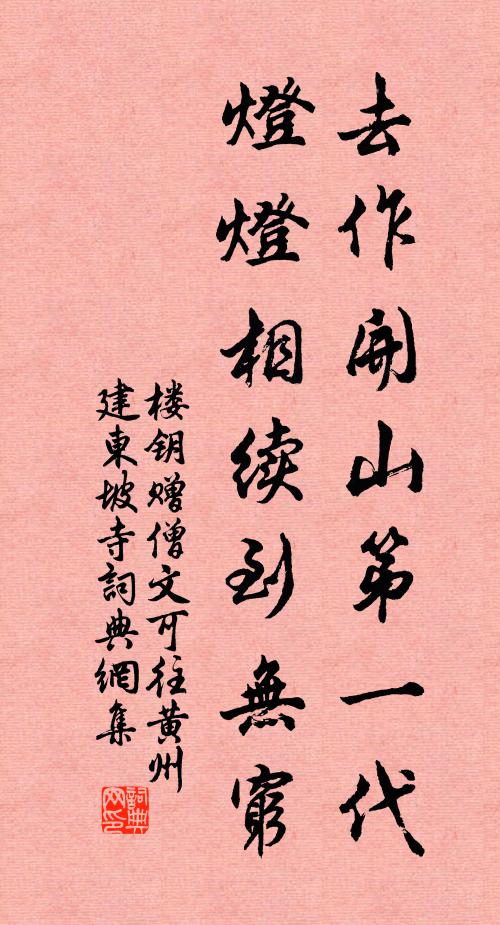 去作開山第一代
燈燈相續到無窮
楼钥赠僧文可往黄州
建東坡寺詞典網集
詞典
网印